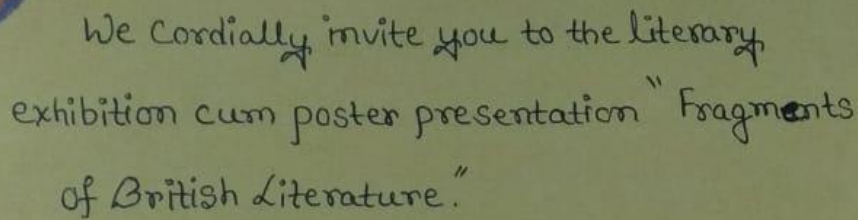 We Cordially invite you to the literary
exhibition cum poster presentation "Fragments
of British Literature."